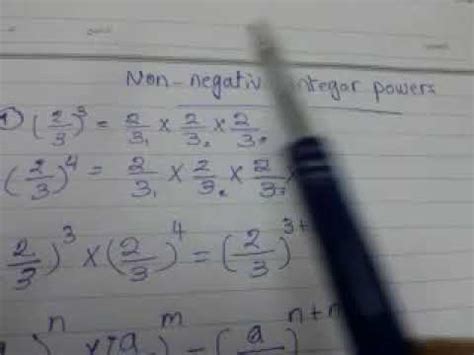 Non-negativ integar powers
1) (2/3)^3 = 2/3 × 2/3 × 2/3
(2/3)^4 = 2/3 × 2/3 × 2/3
2/3)^3 × (2/3)^4 = (2/3)^3+
)^n × (a )^m = (a )^n+m